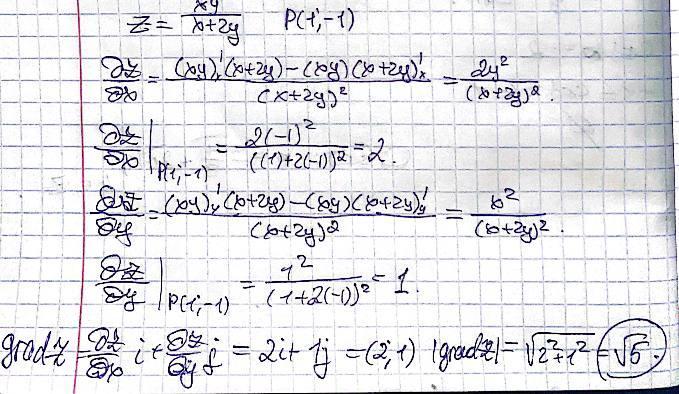 z = xy / x+2y P(1;-1)
∂z/∂x = (xy)'ₓ(x+2y) - (xy)(x+2y)'ₓ / (x+2y)² = 2y² / (x+2y)².
∂z/∂x |P(1;-1) = 2(-1)² / ((1)+2(-1))² = 2.
∂z/∂y = (xy)'y(x+2y) - (xy)(x+2y)'y / (x+2y)² = x² / (x+2y)².
∂z/∂y |P(1;-1) = 1² / (1+2(-1))² = 1.
grad z = ∂z/∂x i + ∂z/∂y j = 2i + 1j = (2;1) |grad z| = √2²+1² = √5.